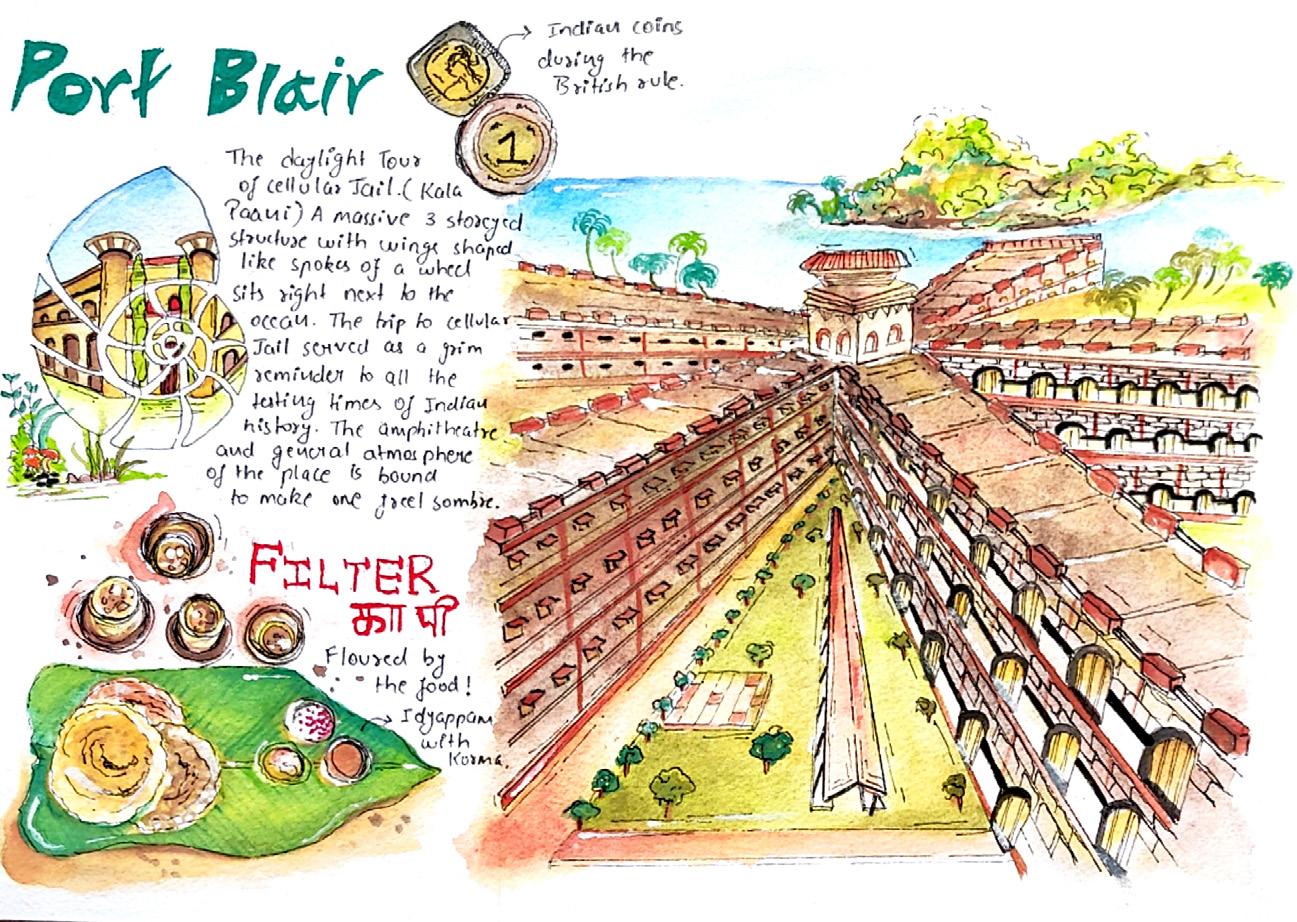 Port Blair
Indian coins
during the
British rule.
1
The daylight Tour
of cellular Jail.( Kala
Paani) A massive 3 storeyed
structure with wings shaped
like spokes of a wheel
sits right next to the
ocean. The trip to cellular
Jail served as a grim
reminder to all the
testing times of Indian
history. The amphitheatre
and general atmosphere
of the place is bound
to make one feel sombre.
FILTER
कापी
Floured by
the food!
Idyappam
with
Korma.